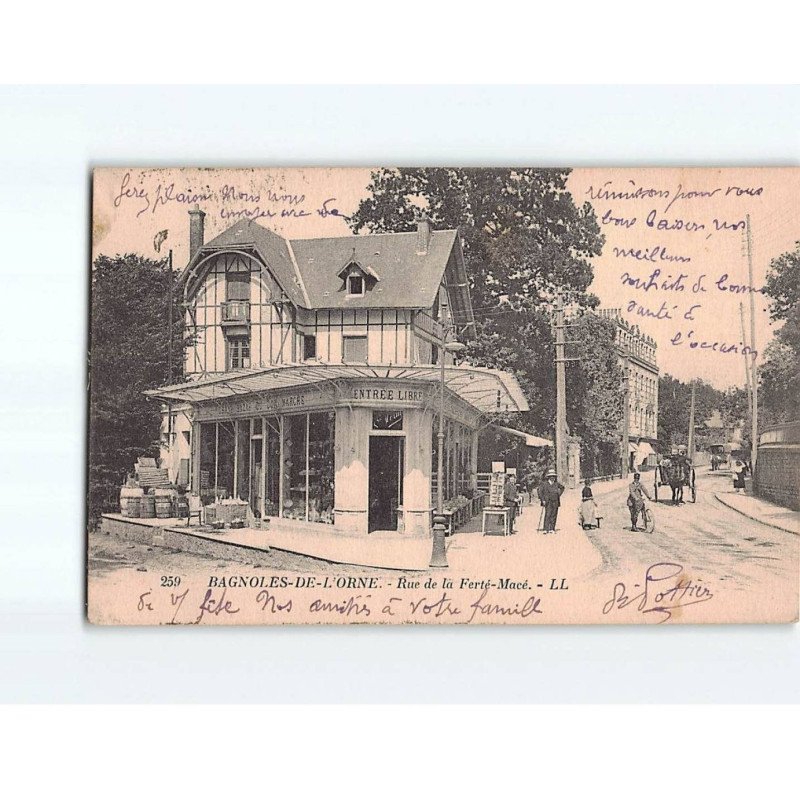 ferez plaisir Nous nous
remissons pour vous
vous baisers, nos
meilleurs
souhaits de bonne
santé à
l'occasion
MARCHÉ
ENTRÉE LIBRE
259 BAGNOLES-DE-L'ORNE. - Rue de la Ferté-Macé. - LL
de fête Nos amitiés à votre famille
Pottier